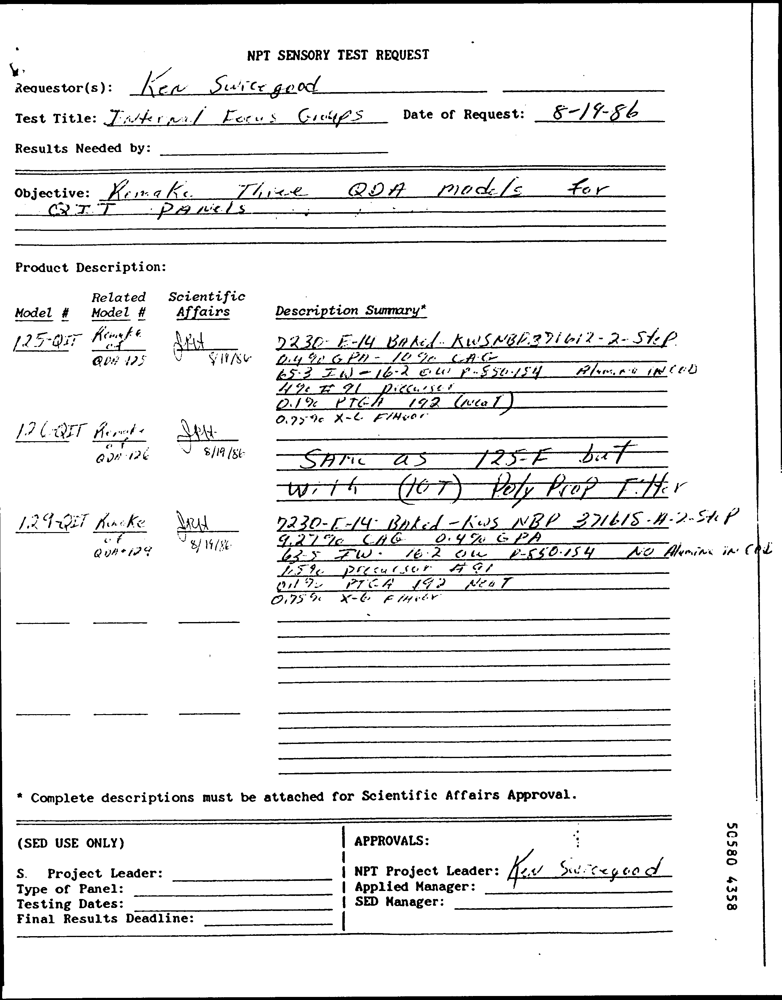 NPT SENSORY TEST REQUEST
Requestor(s): Ken Swicegood
Test Title: Internal Focus Groups Date of Request: 8-19-86
Results Needed by:
Objective: Remake Three QDA models for
QIT Panels
Product Description:
Model # Related Model # Scientific Affairs Description Summary*
125-QIT Remake of QDA 125 8/19/86
7230-E-14 Baked-KWSNBP 371612-2-Step
0.4% GPA - 10% CAG
65.3 IW - 16.2 OW P-550-154 Alumina in COD
4% # 91 precursor
0.1% PTGA 192 (Neat)
0.75% X-6 Flavor
126-QIT Remake of QDA 126 8/19/86
SAME as 125-F but
with (10T) Poly Prop Filter
129-QIT Remake of QDA 129 8/19/86
7230-E-14 Baked-KWS NBP 371615-A-2-Step
9.27% CAG 0.4% GPA
63.5 IW - 16.2 OW P-550-154 NO Alumina in COD
1.5% precursor #91
0.1% PTGA 192 Neat
0.75% X-6 Flavor
* Complete descriptions must be attached for Scientific Affairs Approval.
(SED USE ONLY)
S. Project Leader:
Type of Panel:
Testing Dates:
Final Results Deadline:
APPROVALS:
NPT Project Leader: Ken Swicegood
Applied Manager:
SED Manager:
50580 4358